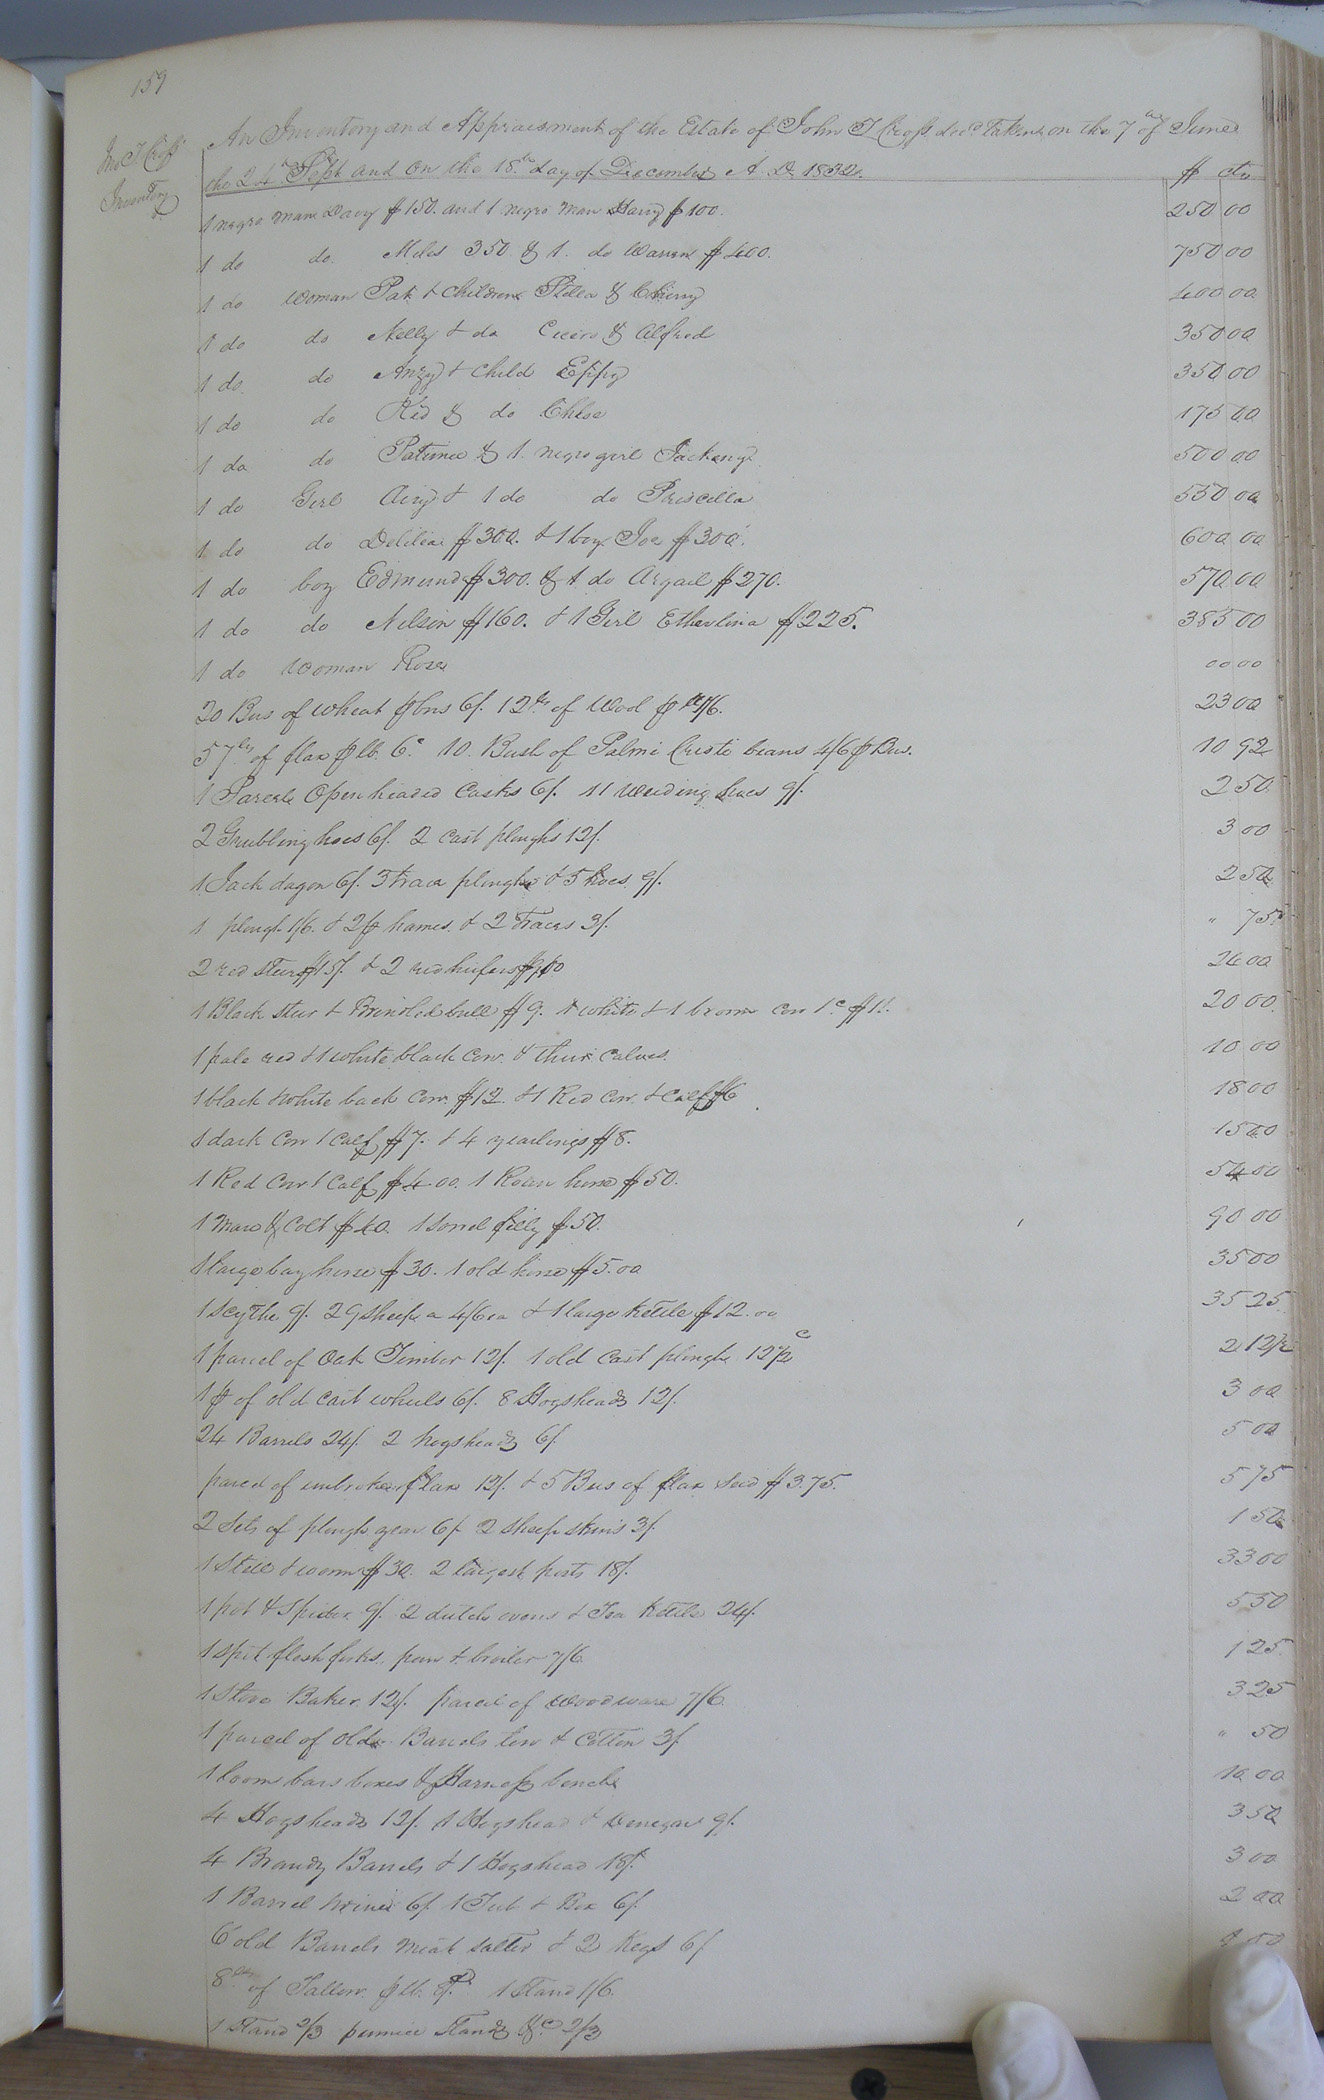 159
Jno T Cross
Inventory
An Inventory and Appraisment of the Estate of John T Cross decd taken on the 7th of June
the 24th Sept and on the 18th day of December A. D. 1832. $ cts
1 negro man Davy $150. and 1 negro man Harry $100. 250 00
1 do do Miles 350 & 1. do Warren $400. 750 00
1 do Woman Pat & children Stella & Cherry 400 00
1 do do Nelly & do Cicero & Alfred 350 00
1 do do Anzy & child Eppy 350 00
1 do do Kid & do Chloe 175 00
1 do do Patience & 1. negro girl 500 00
1 do Girl Airy & 1 do do Priscilla 550 00
1 do do Delilia $300. & 1 boy Joe $300. 600 00
1 do boy Edmund $300. & 1 do Argail $270. 570 00
1 do do Nelson $160. & 1 Girl Etherlina $225. 385 00
1 do woman Rose 00 00
20 Bus of wheat p bus 6/. 12 lbs of Wool p lb 1/6. 23 00
57 lbs of flax p lb. 6c 10. Bush of Palmi Christi beans 4/6 p Bus. 10 92
1 Parcele Open headed Casks 6/. 11 Weeding hoes 9/. 2 50
2 Grubbing hoes 6/. 2 cast ploughs 12/. 3 00
1 Jack dagon 6/. 3 trace ploughs & 5 hoes 9/. 2 50
1 plough 1/6. & 2 p hames. & 2 Traces 3/. " 75
2 red steers $15/. & 2 red heifers 24 00
1 Black steer & Brindled bull $9. 1 white & 1 brown cow 1c $11. 20 00
1 pale red & 1 white black cow. & their calves. 10 00
1 black & white back cow. $12. & 1 Red cow. & calf $6 18 00
1 dark cow 1 calf $7. & 4 yearlings $8. 15 00
1 Red cow 1 calf $4.00. 1 Roan horse $50. 54 00
1 Mare & Colt $40. 1 sorrel filly $50. 90 00
1 large bay horse $30. 1 old horse $5.00 35 00
1 scythe 9/. 29 sheep a 4/6 ea & 1 large kettle $12.00 35 25
1 parcel of Oak Timber 12/. 1 old cast plough 12 1/2 c 2 12 1/2
1 p of old cart wheels 6/. 8 Hogsheads 12/. 3 00
24 Barrels 24/. 2 hogsheads 6/. 5 00
parcel of unbroke flax 12/. & 5 Bus of flax seed $3.75. 5 75
2 Sets of plough gear 6/. 2 sheep skins 3/. 1 50
1 Still & worm $30. 2 largest pots 18/. 33 00
1 pot & Spider 9/. 2 dutch ovens & Tea kettle 24/. 5 50
1 spit flesh forks, pan & broiler 7/6 1 25
1 Stone Baker 12/. parcel of Woodware 7/6. 3 25
1 parcel of old Barrels tow & cotton 3/. " 50
1 loom bars boxes & Harness bench 10 00
4 Hogsheads 12/. 1 Hogshead & Vinegar 9/. 3 50
4 Brandy Barrels & 1 Hogshead 18/. 3 00
1 Barrel 6/. 1 Tub & Box 6/. 2 00
6 old Barrels meat salter & 2 Kegs 6/
8 lbs of Tallow p lb. 1 Stand 1/6.
1 Stand 2/3 Stands &c 2/3